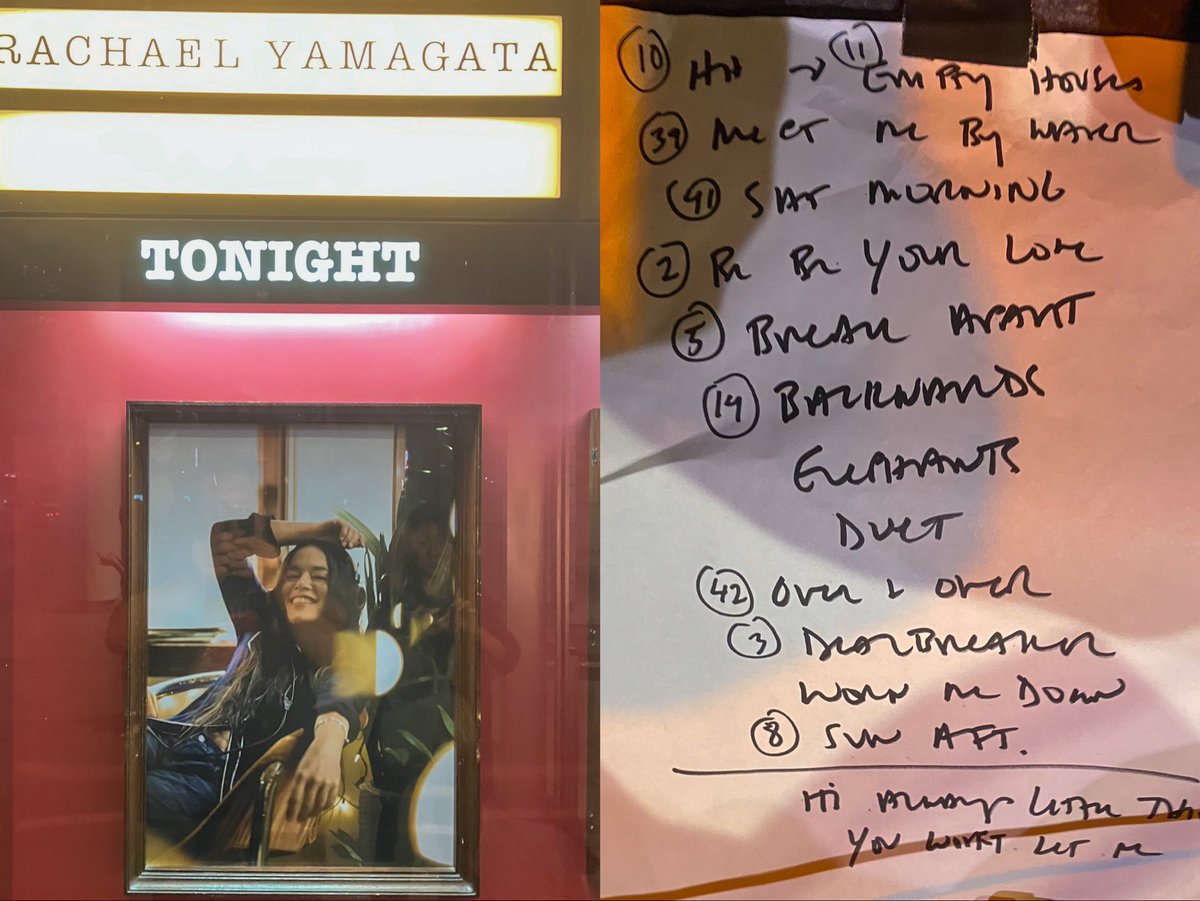 RACHAEL YAMAGATA
TONIGHT
10 HH → 11 EMPTY HOUSES
39 MEET ME BY WATER
41 SAT MORNING
2 BE BE YOUR LOVE
5 BREAK APART
14 BACKWARDS
ELEPHANTS
DUET
42 OVER & OVER
3 DEALBREAKER
WORN ME DOWN
8 SUN AFT.
YOU WON'T LET ME